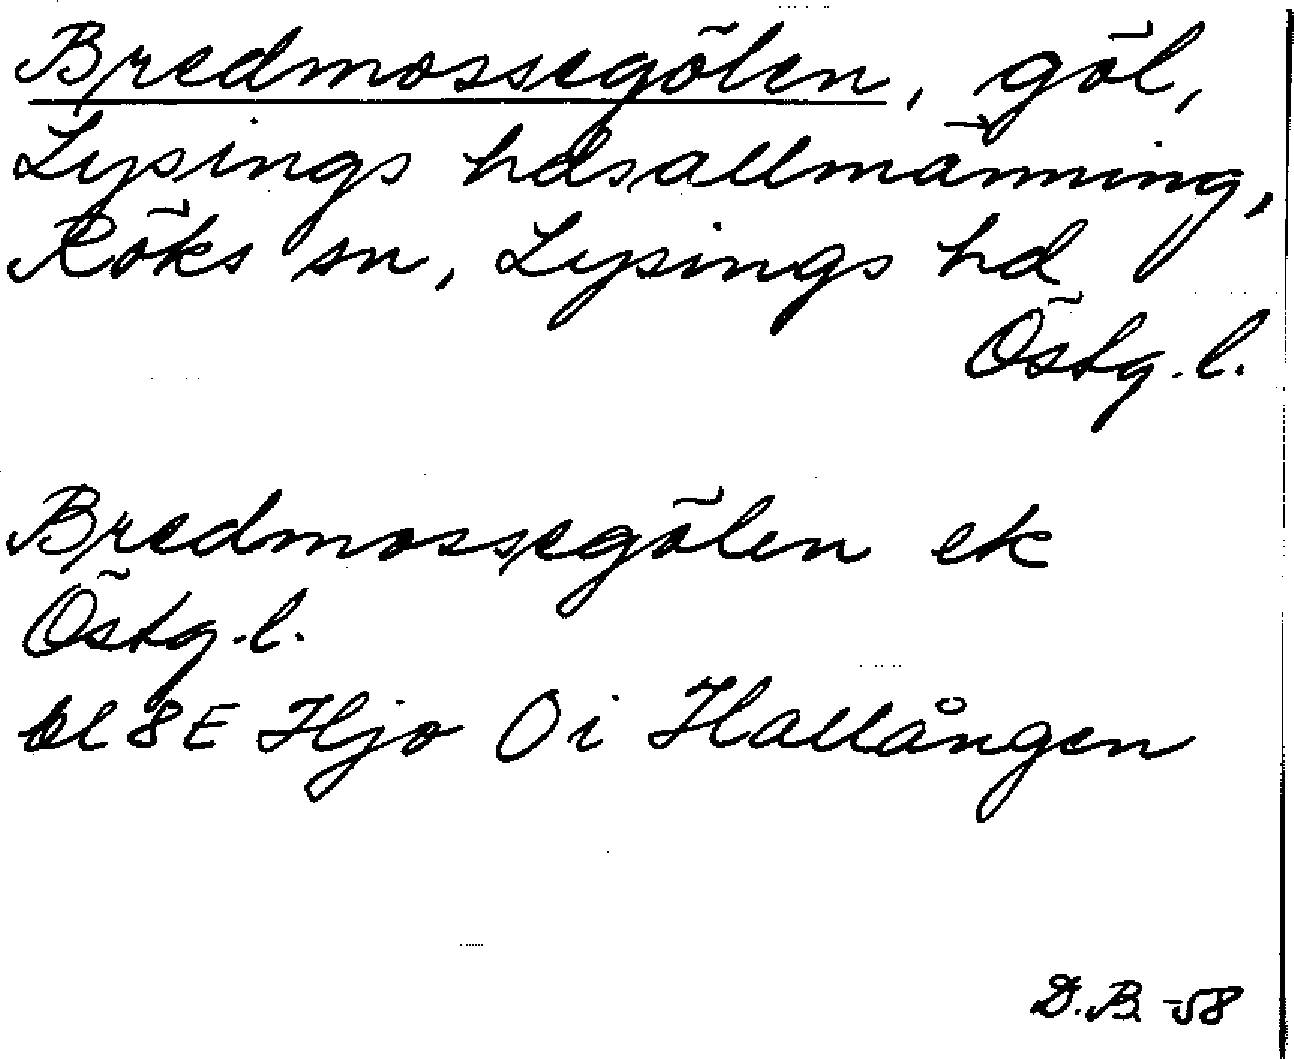 Bredmossegölen, göl,
Lysings hdsallmänning,
Röks sn, Lysings hd
Östg.l.
Bredmossegölen ek
Östg.l.
bl 8E Hjo Oi Hallången
D.B -58